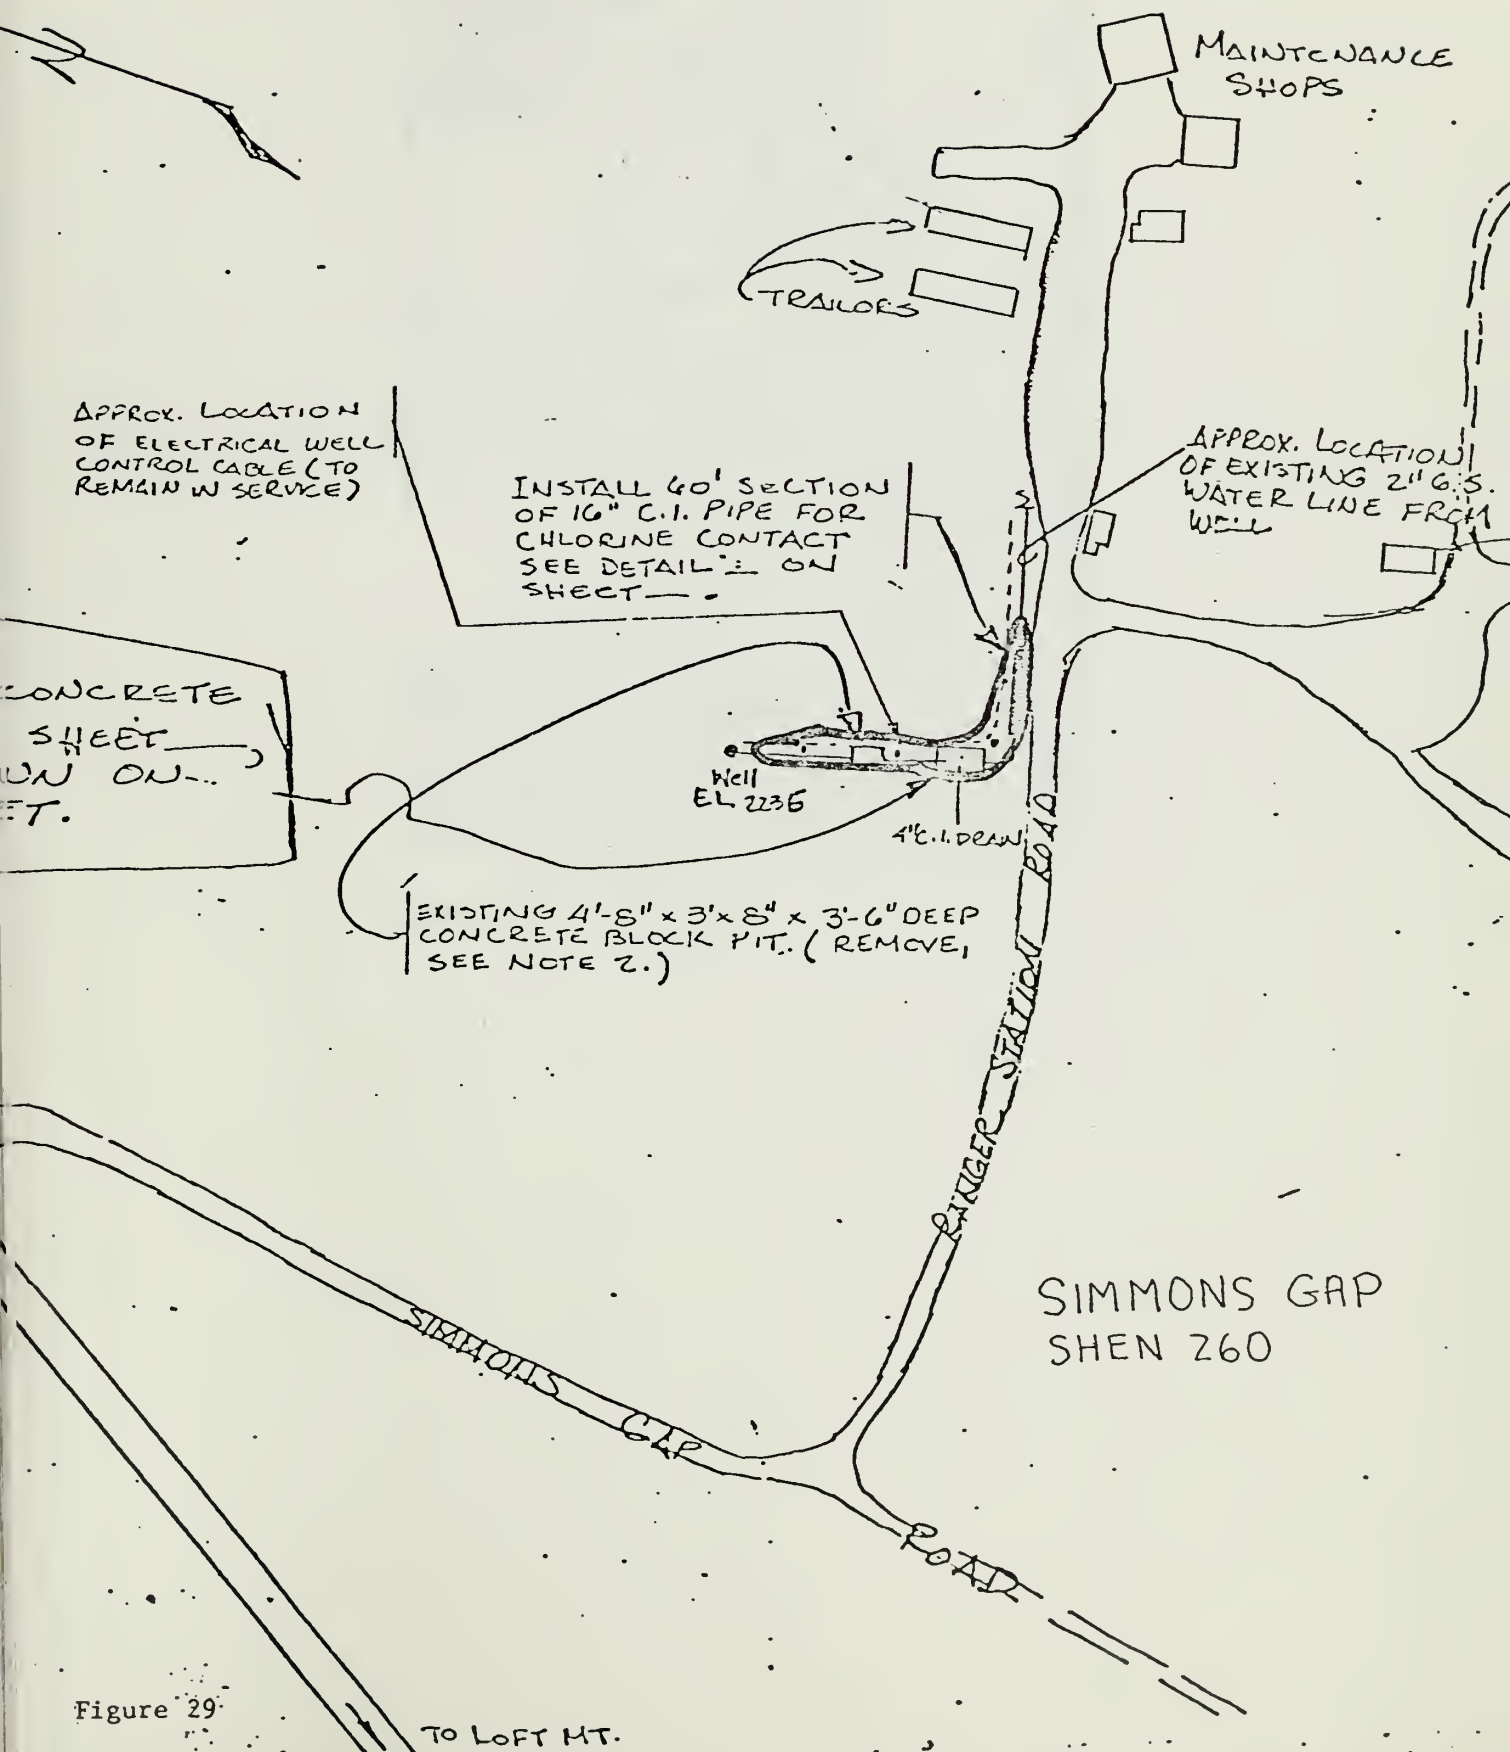 MAINTENANCE
SHOPS
TRAILORS
APPROX. LOCATION
OF ELECTRICAL WELL
CONTROL CABLE (TO
REMAIN IN SERVICE)
INSTALL 60' SECTION
OF 16" C.I. PIPE FOR
CHLORINE CONTACT
SEE DETAIL ON
SHEET — .
APPROX. LOCATION
OF EXISTING 2" G.S.
WATER LINE FROM
WELL
CONCRETE
SHEET
ON
Well
EL 2236
4" C.I. DRAIN
EXISTING 4'-8" x 3'x 8" x 3'-6" DEEP
CONCRETE BLOCK PIT. (REMOVE,
SEE NOTE 2.)
RANGER STATION ROAD
SIMMONS GAP
SHEN 260
SIMMONS GAP ROAD
Figure 29
TO LOFT MT.